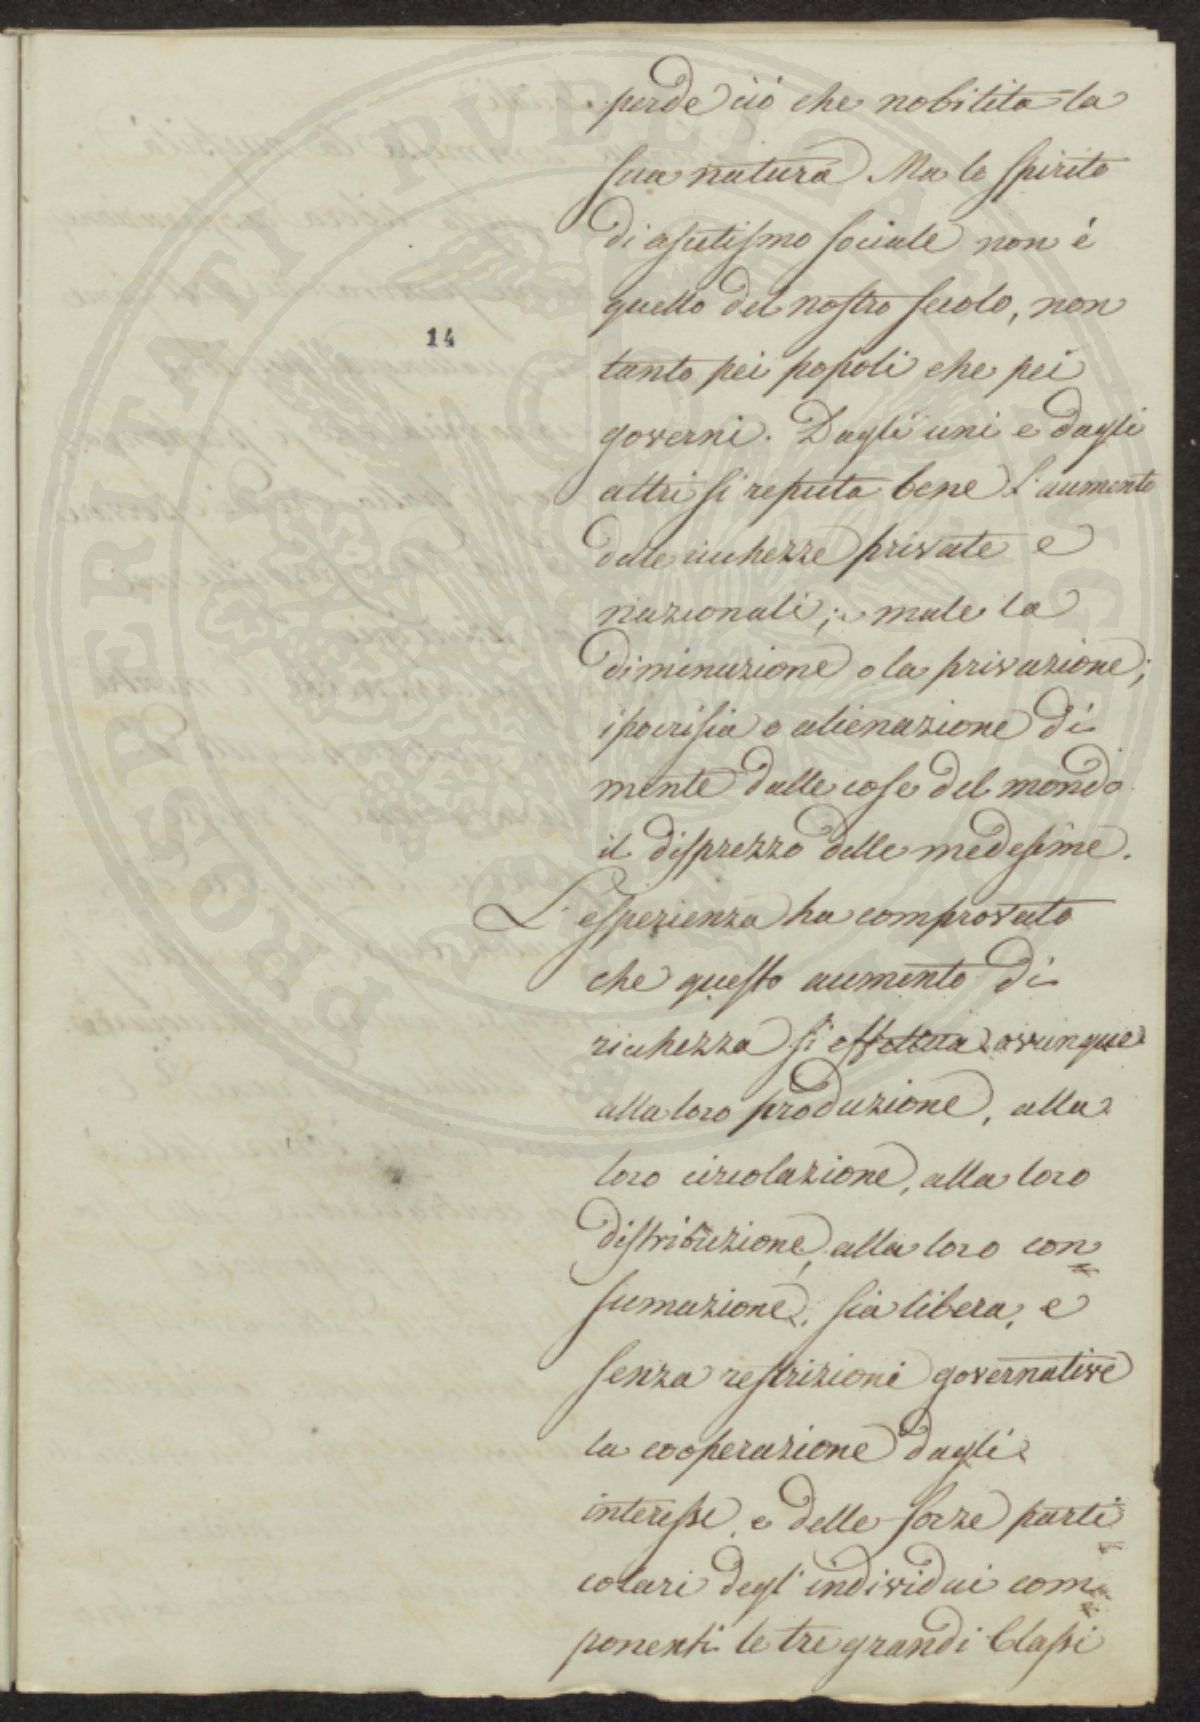 perde ció che nobilita la
sua natura. Ma lo spirito
di ascetismo sociale non é
quello del nostro secolo, non
14
tanto pei popoli che pei
governi. Dagli uni e dagli
altri si reputa bene l'aumento
dele ricchezze private e
nazionali; male la
diminuzione o la privazione;
ipocrisia o alienazione di
mente dalle cose del mondo
il disprezzo delle medesime.
L'esperienza ha comprovato
che questo aumento di
ricchezza si effettua ovunque
alla loro produzione, alla
loro circolazione, alla loro
distribuzione, alla loro con
sumazione, sia libera, e
senza restrizioni governative
la cooperazione dagli
interessi, e delle forze parti
colari degl'individui com
ponenti le tre grandi Classi
PROSPERITATI PVBLICAE